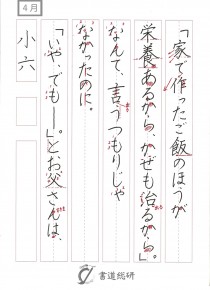 4月
「家で作ったご飯のほうが
栄養あるから、かぜも治るから」
なんて、言うつもりじゃ
なかったのに。
「いや、でも―」。とお父さんは、
小六
書道総研